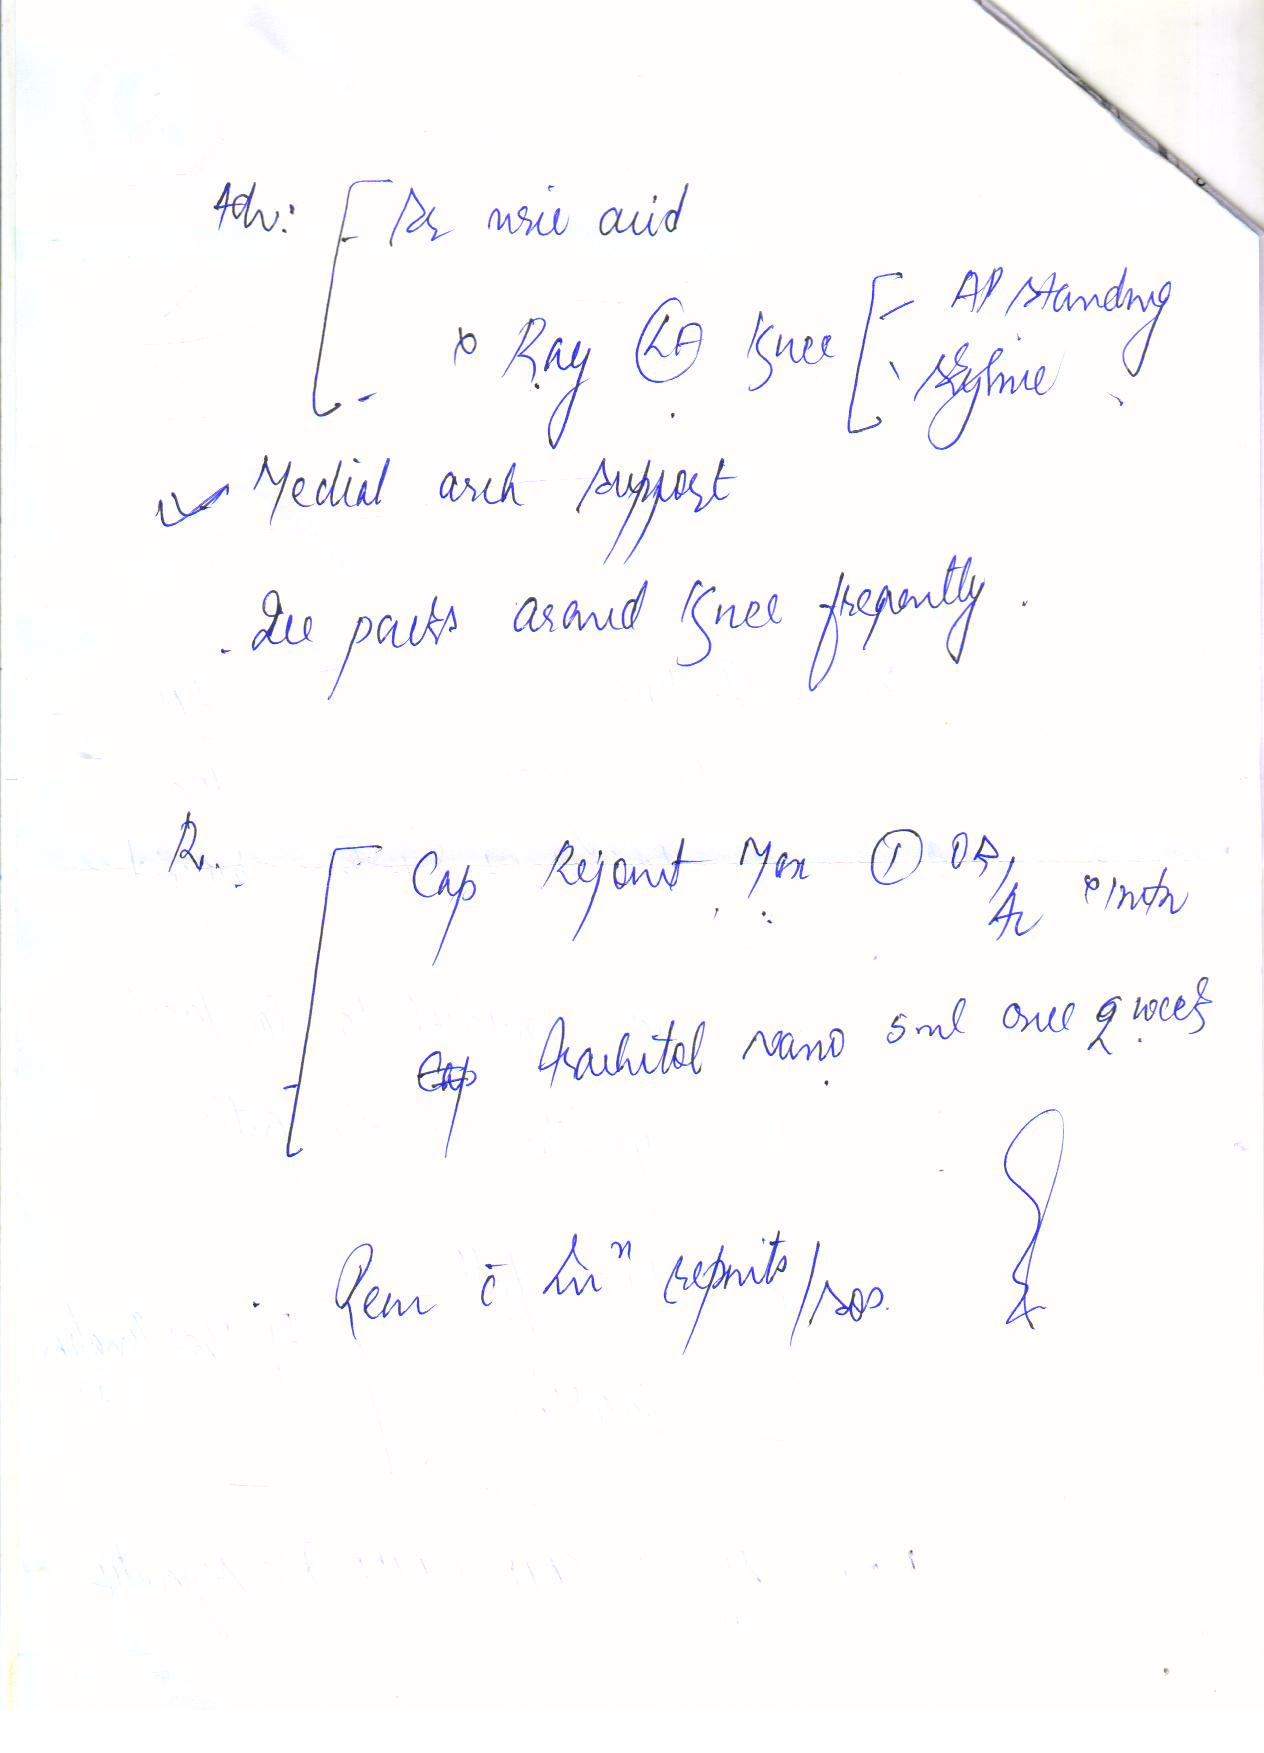 Adv: Sr uric acid
X Ray knee AP standing
skyline
Medial arch support
Ice packs around knee freqently.
Rx. Cap Rejoint Max ① OD x 1 mth
Cap Arachitol nano 5ml once 2 week
c̄ Invⁿ reports/sos.